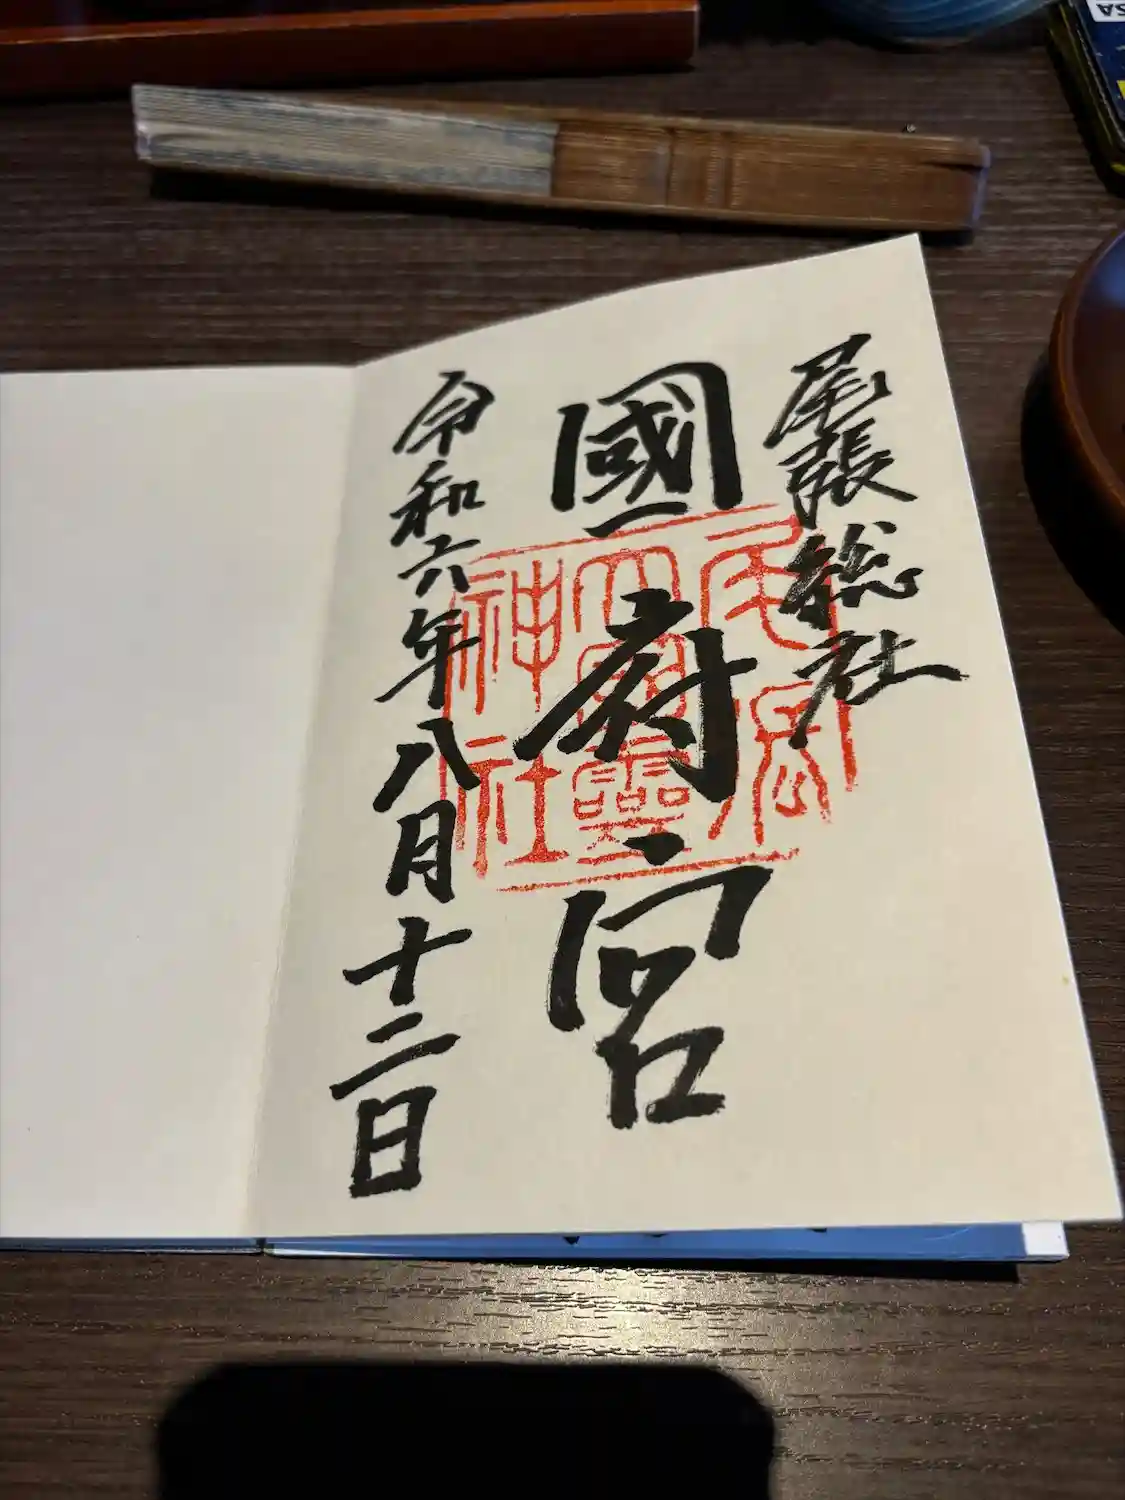 尾張総社
國府宮
令和六年八月十二日
尾張
大國霊
神社
SA